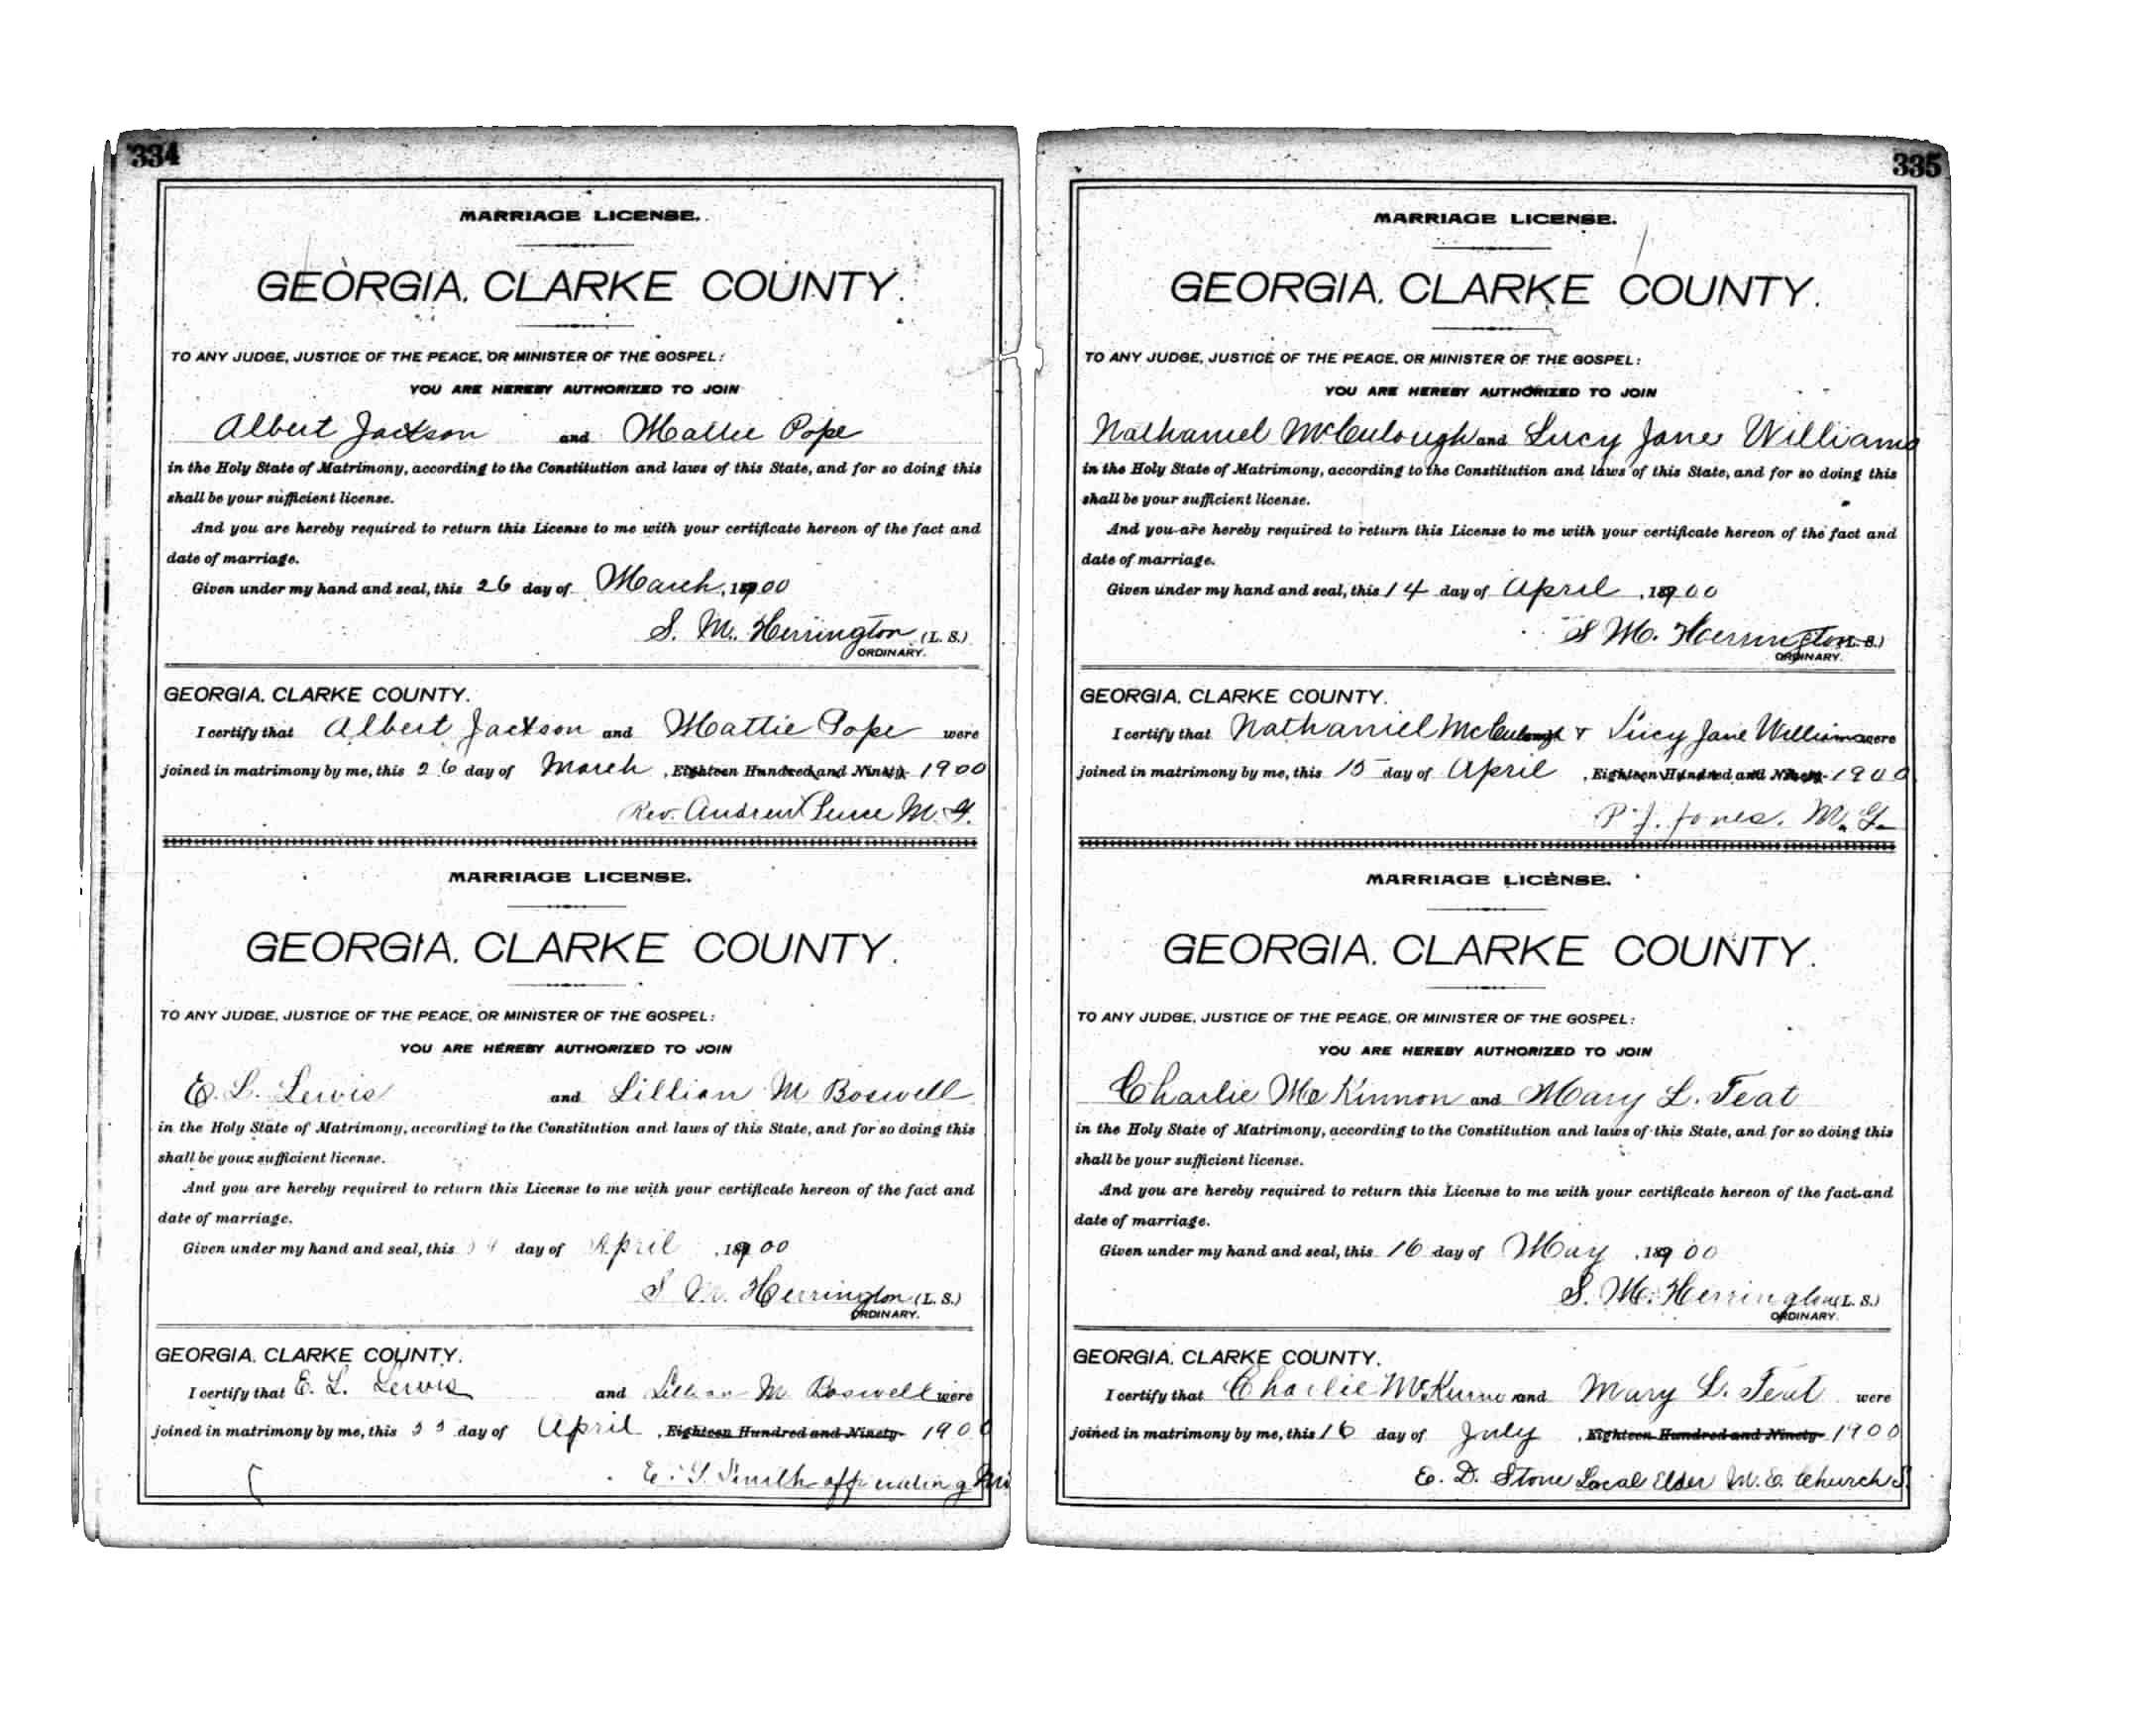 334
MARRIAGE LICENSE.
GEORGIA, CLARKE COUNTY.
TO ANY JUDGE, JUSTICE OF THE PEACE, OR MINISTER OF THE GOSPEL:
YOU ARE HEREBY AUTHORIZED TO JOIN
Albert Jackson and Mattie Pope
in the Holy State of Matrimony, according to the Constitution and laws of this State, and for so doing this
shall be your sufficient license.
And you are hereby required to return this License to me with your certificate hereon of the fact and
date of marriage.
Given under my hand and seal, this 26 day of March, 1900
S. M. Herrington (L. S.)
ORDINARY.
GEORGIA, CLARKE COUNTY.
I certify that Albert Jackson and Mattie Pope were
joined in matrimony by me, this 26 day of March, Eighteen Hundred and Ninety- 1900
Rev. Andrew M. G.
MARRIAGE LICENSE.
GEORGIA, CLARKE COUNTY.
TO ANY JUDGE, JUSTICE OF THE PEACE, OR MINISTER OF THE GOSPEL:
YOU ARE HEREBY AUTHORIZED TO JOIN
E. L. Lewis and Lillian M Boswell
in the Holy State of Matrimony, according to the Constitution and laws of this State, and for so doing this
shall be your sufficient license.
And you are hereby required to return this License to me with your certificate hereon of the fact and
date of marriage.
Given under my hand and seal, this day of April, 1900
S M. Herrington (L. S.)
ORDINARY.
GEORGIA, CLARKE COUNTY.
I certify that E. L. Lewis and Lillian M Boswell were
joined in matrimony by me, this day of April, Eighteen Hundred and Ninety- 1900
Smith
335
MARRIAGE LICENSE.
GEORGIA, CLARKE COUNTY.
TO ANY JUDGE, JUSTICE OF THE PEACE, OR MINISTER OF THE GOSPEL:
YOU ARE HEREBY AUTHORIZED TO JOIN
Nathaniel McCulough and Lucy Jane Williams
in the Holy State of Matrimony, according to the Constitution and laws of this State, and for so doing this
shall be your sufficient license.
And you are hereby required to return this License to me with your certificate hereon of the fact and
date of marriage.
Given under my hand and seal, this 14 day of April, 1900
S M. Herrington (L. S.)
ORDINARY.
GEORGIA, CLARKE COUNTY.
I certify that Nathaniel McCulough & Lucy Jane Williams were
joined in matrimony by me, this 15 day of April, Eighteen Hundred and Ninety- 1900
P. J. Jones. M. G.
MARRIAGE LICENSE.
GEORGIA, CLARKE COUNTY.
TO ANY JUDGE, JUSTICE OF THE PEACE, OR MINISTER OF THE GOSPEL:
YOU ARE HEREBY AUTHORIZED TO JOIN
Charlie McKinnon and Mary L. Teat
in the Holy State of Matrimony, according to the Constitution and laws of this State, and for so doing this
shall be your sufficient license.
And you are hereby required to return this License to me with your certificate hereon of the fact and
date of marriage.
Given under my hand and seal, this 16 day of May, 1900
S. M. Herrington (L. S.)
ORDINARY.
GEORGIA, CLARKE COUNTY.
I certify that Charlie and Mary L. Teat were
joined in matrimony by me, this 16 day of July, Eighteen Hundred and Ninety- 1900
E. D. Stone Local Elder M. E. Church S.